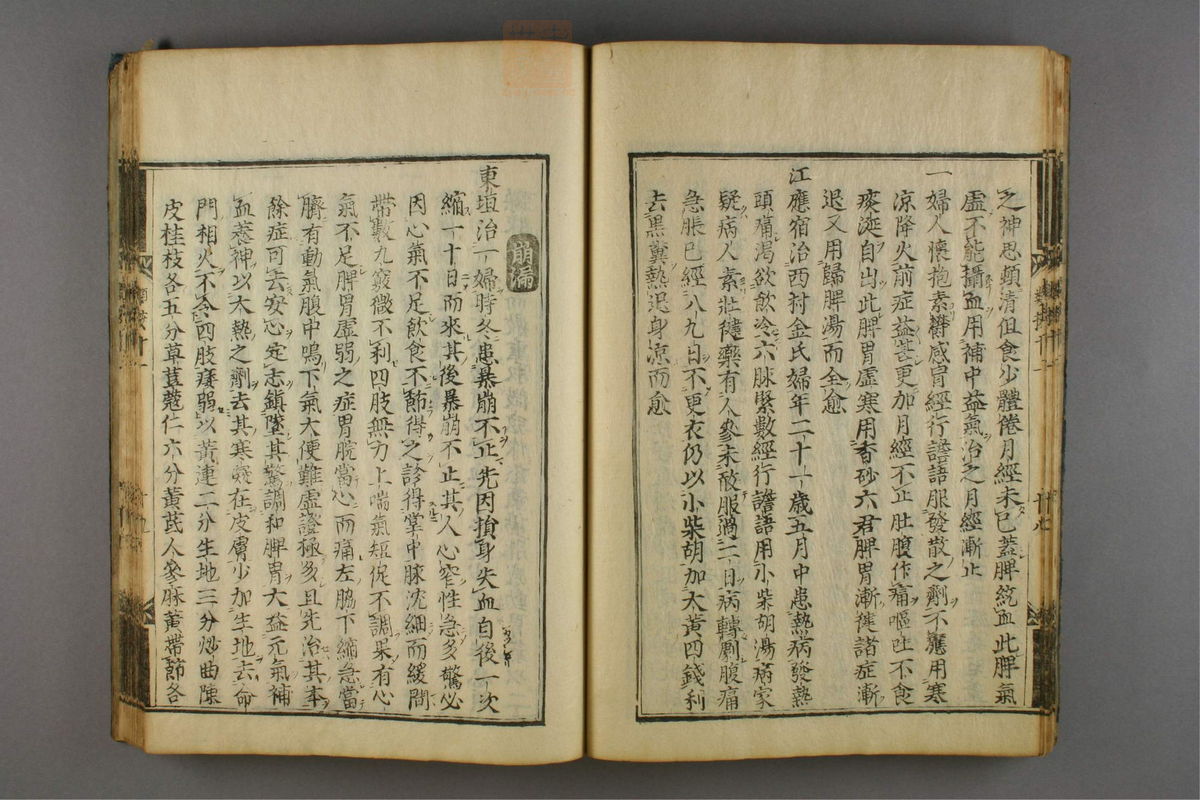 之神思頓清但食少體倦月經未已蓋脾統血此脾氣
虛不能攝血用補中益氣治之月經漸止
一婦人懷抱素欝感冐經行譫語服發散之劑不應用寒
凉降火前症益甚更加月經不止肚腹作痛嘔吐不食
痰涎自出此脾胃虛寒用香砂六君脾胃漸徤諸症漸
退又用歸脾湯而全愈
江應宿治西村金氏婦年二十一歳五月中患熱病發熱
頭痛渴欲飲冷六脉緊數經行譫語用小柴胡湯病家
疑病人素壯徤藥有人參未敢服過二日病轉劇腹痛
急脹已經八九日不更衣仍以小柴胡加大黄四錢利
去黒糞熱退身凉而愈
崩漏
東垣治一婦時冬患暴崩不止先因損身失血自後一次
縮一十日而來其後暴崩不止其人心窄性急多驚必
因心氣不足飲食不節得之診得掌中脉沈細而緩間
帶數九竅微不利四肢無力上喘氣短促不調果有心
氣不足脾胃虛弱之症胃脘當心而痛左脇下縮急當
臍有動氣腹中鳴下氣大便難虛證極多且先治其本
餘症可去安心定志鎮墜其驚調和脾胃大益元氣補
血養神以大熱之劑去其寒凝在皮膚少加生地去命
門相火不令四肢痿弱以黄連二分生地三分炒曲陳
皮桂枝各五分草荳蔲仁六分黄芪人參麻黄帶節各